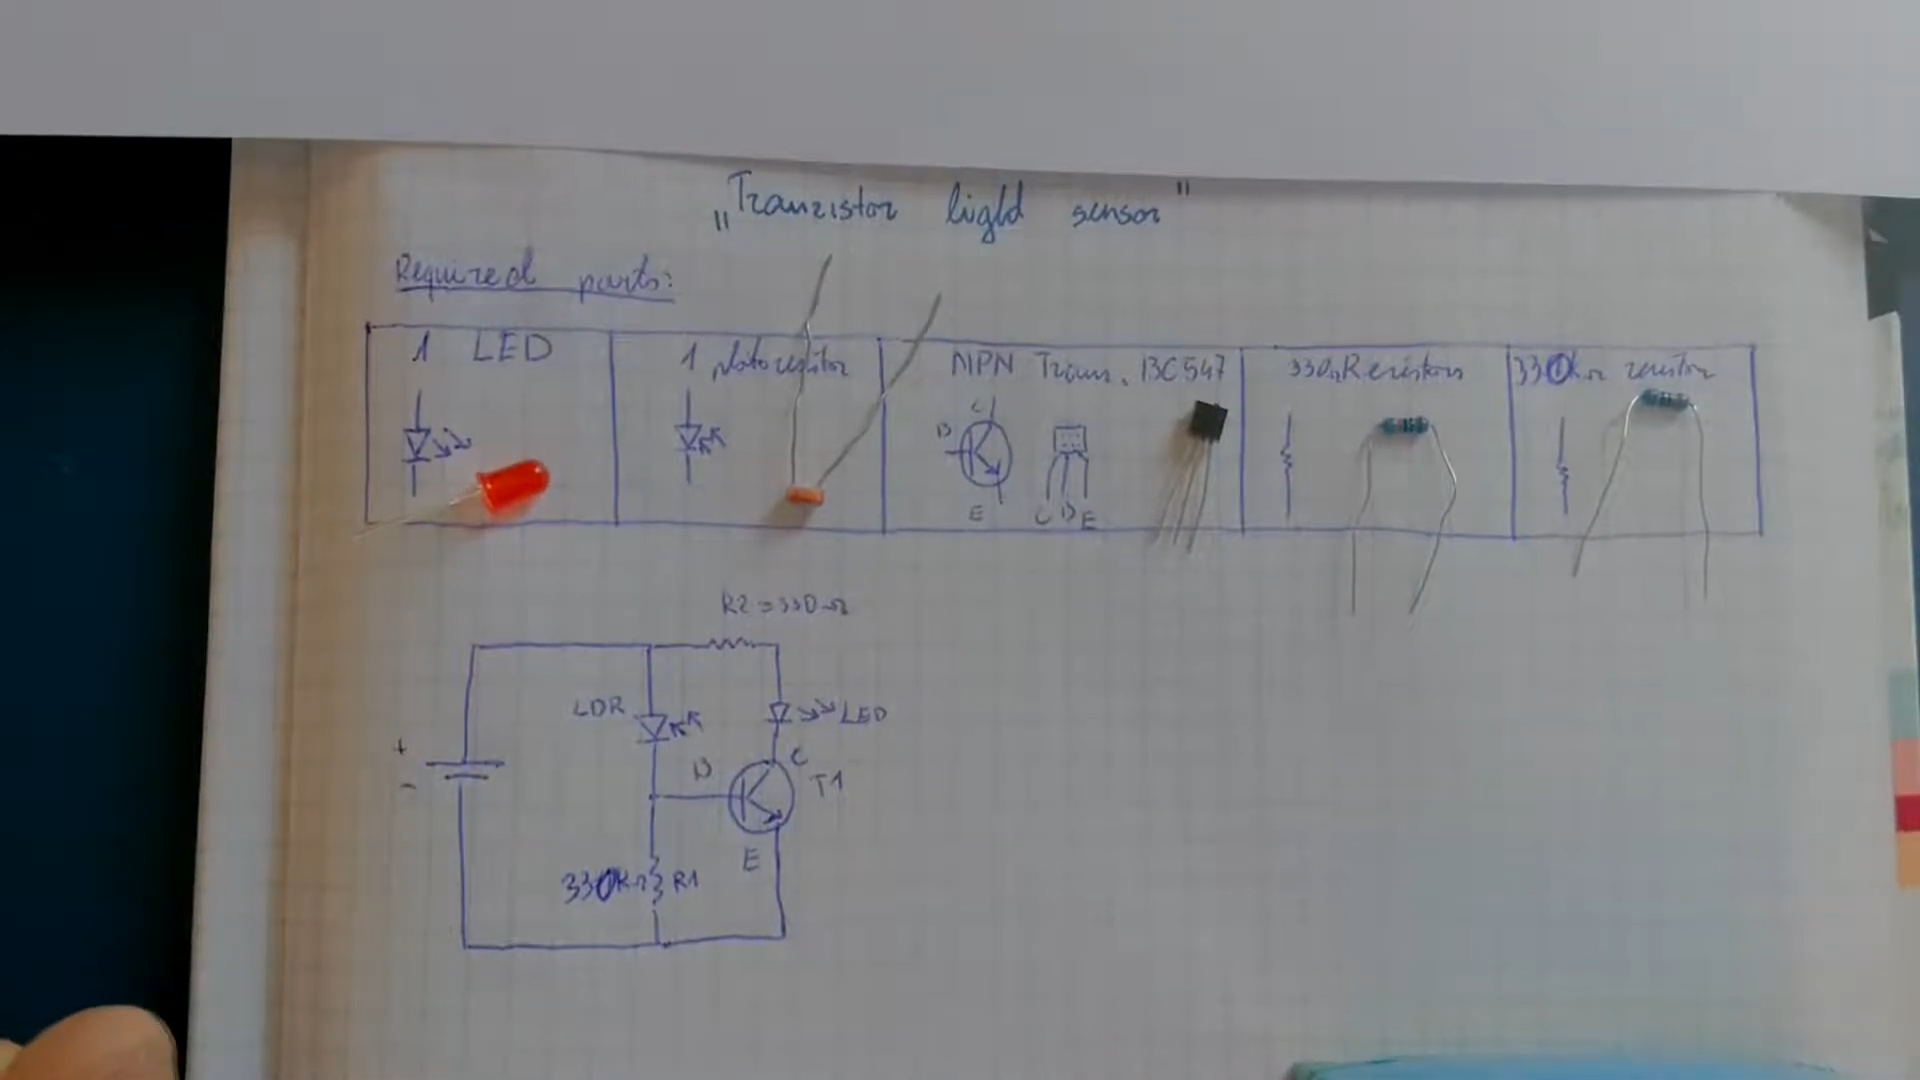 „Tranzistor light sensor"
Required parts:
1 LED
1 photorezistor
NPN Trans. BC547
330Ω Rezistors
330kΩ rezistor
C
B
E
C B E
R2=330Ω
LDR
LED
+
-
B
C
T1
E
330KΩ
R1